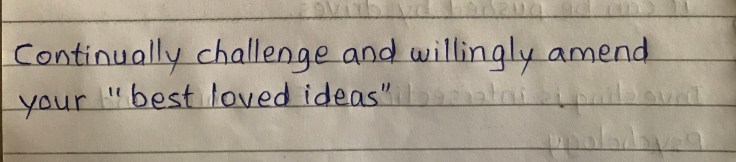 Continually challenge and willingly amend
your "best loved ideas"